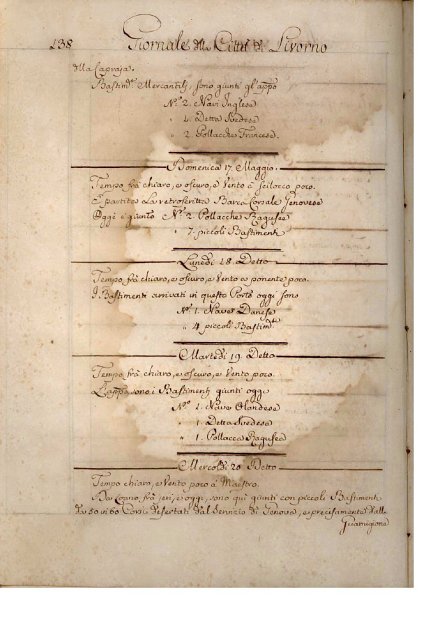 138 Giornale della Città di Livorno
della Capraja.
Bastim.ti Mercantili, sono giunti gl'app.o
N.o 2. Navi Inglese
" Detta Svedese
" 2. Pollacche Francese.
Domenica 17. Maggio.
Tempo frà chiaro, e oscuro, e Vento è Scilocco poco.
È partito La retroscritta Barca Corsale Genovese
Oggi è giunto N.o 2. Pollacche Raguseè
" 7. piccoli Bastimenti
Lunedì 18. Detto
Tempo frà chiaro, e oscuro, e Vento a ponente poco.
I Bastimenti arrivati in questo Porto oggi sono
N.o 1. Nave Danese
" 4 piccoli Bastim.ti
Martedì 19. Detto
Tempo frà chiaro, e oscuro, e Vento poco.
L'appo sono i Bastimenti giunti oggi
N.o 1. Nave Olandese
" 1. Detta Svedese
" 1. Pollacca Raguseè
Mercoldì 20 Detto
Tempo chiaro, e Vento poco à Maestro.
Da Capo, frà jeri, e oggi, sono quì giunti con piccoli Bastimenti
da 50 in 60 Corsi desertati dal Servizio di Genova, e precisamente dalle
Guarnigione